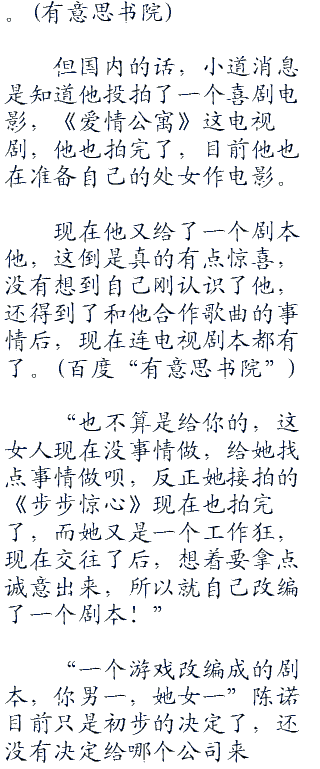 。(有意思书院)
但国内的话，小道消息
是知道他投拍了一个喜剧电
影，《爱情公寓》这电视
剧，他也拍完了，目前他也
在准备自己的处女作电影。
现在他又给了一个剧本
他，这倒是真的有点惊喜，
没有想到自己刚认识了他，
还得到了和他合作歌曲的事
情后，现在连电视剧本都有
了。(百度“有意思书院”)
“也不算是给你的，这
女人现在没事情做，给她找
点事情做呗，反正她接拍的
《步步惊心》现在也拍完
了，而她又是一个工作狂，
现在交往了后，想着要拿点
诚意出来，所以就自己改编
了一个剧本！”
“一个游戏改编成的剧
本，你男一，她女一”陈诺
目前只是初步的决定了，还
没有决定给哪个公司来